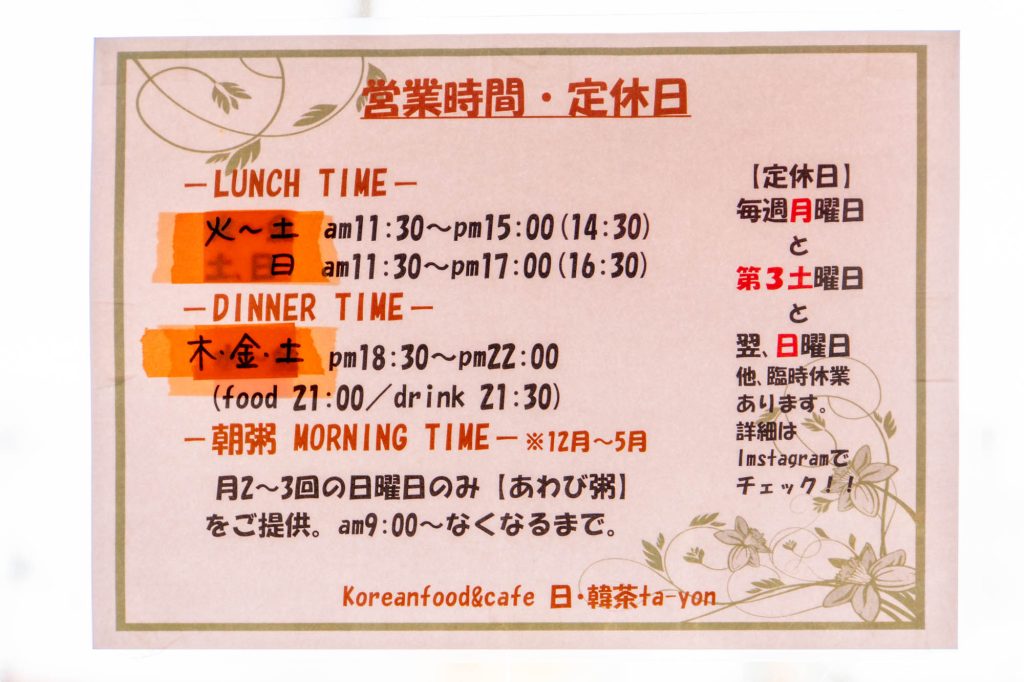 営業時間・定休日
－LUNCH TIME－
火～土 am11:30～pm15:00(14:30)
日 am11:30～pm17:00(16:30)
－DINNER TIME－
木・金・土 pm18:30～pm22:00
(food 21:00／drink 21:30)
－朝粥 MORNING TIME－※12月～5月
月2～3回の日曜日のみ【あわび粥】
をご提供。am9:00～なくなるまで。
【定休日】
毎週月曜日
と
第３土曜日
と
翌、日曜日
他、臨時休業
あります。
詳細は
Imstagramで
チェック！！
Koreanfood&cafe 日・韓茶ta-yon